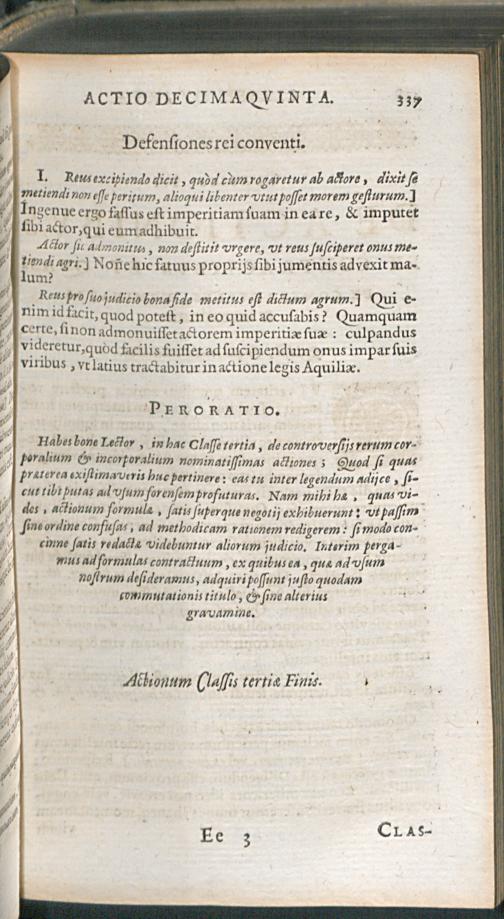 ACTIO DECIMAQVINTA. 337
Defensiones rei conventi.
I. Reus excipiendo dicit, quòd cùm rogaretur ab actore, dixit se
metiendi non esse peritum, alioqui libenter vtut posset morem gesturum.]
Ingenue ergo fassus est imperitiam suam in ea re, & imputet
sibi actor, qui eum adhibuit.
Actor sic admonitus, non destitit vrgere, vt reus susciperet onus me-
tiendi agri.] Noñe hic fatuus proprijs sibi jumentis advexit ma-
lum?
Reus pro suo judicio bona fide metitus est dictum agrum.] Qui e-
nim id facit, quod potest, in eo quid accusabis? Quamquam
certe, si non admonuisset actorem imperitiæ suæ: culpandus
videretur, quòd facilis fuisset ad suscipiendum onus impar suis
viribus, vt latius tractabitur in actione legis Aquiliæ.
PERORATIO.
Habes bone Lector, in hac Classe tertia, de controversijs rerum cor-
poralium & incorporalium nominatissimas actiones; Quod si quas
præterea existimaveris huc pertinere: eas tu inter legendum adijce, si-
cut tibi putas ad vsum forensem profuturas. Nam mihi hæ, quas vi-
des, actionum formulæ, satis superque negotij exhibuerunt: vt passim
sine ordine confusas, ad methodicam rationem redigerem: si modo con-
cinne satis redactæ videbuntur aliorum judicio. Interim perga-
mus ad formulas contractuum, ex quibus ea, quæ ad vsum
nostrum desideramus, adquiri possunt justo quodam
commutationis titulo, & sine alterius
gravamine.
Actionum Classis tertiæ Finis.
Ee 3 CLAS-